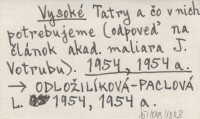 Vysoké Tatry a čo v nich
potrebujeme (odpoveď na
článok akad. maliara J.
Votrubu). 1954, 1954 a.
→ ODLOŽILÍKOVÁ-PACLOVÁ
L. 1954, 1954 a.